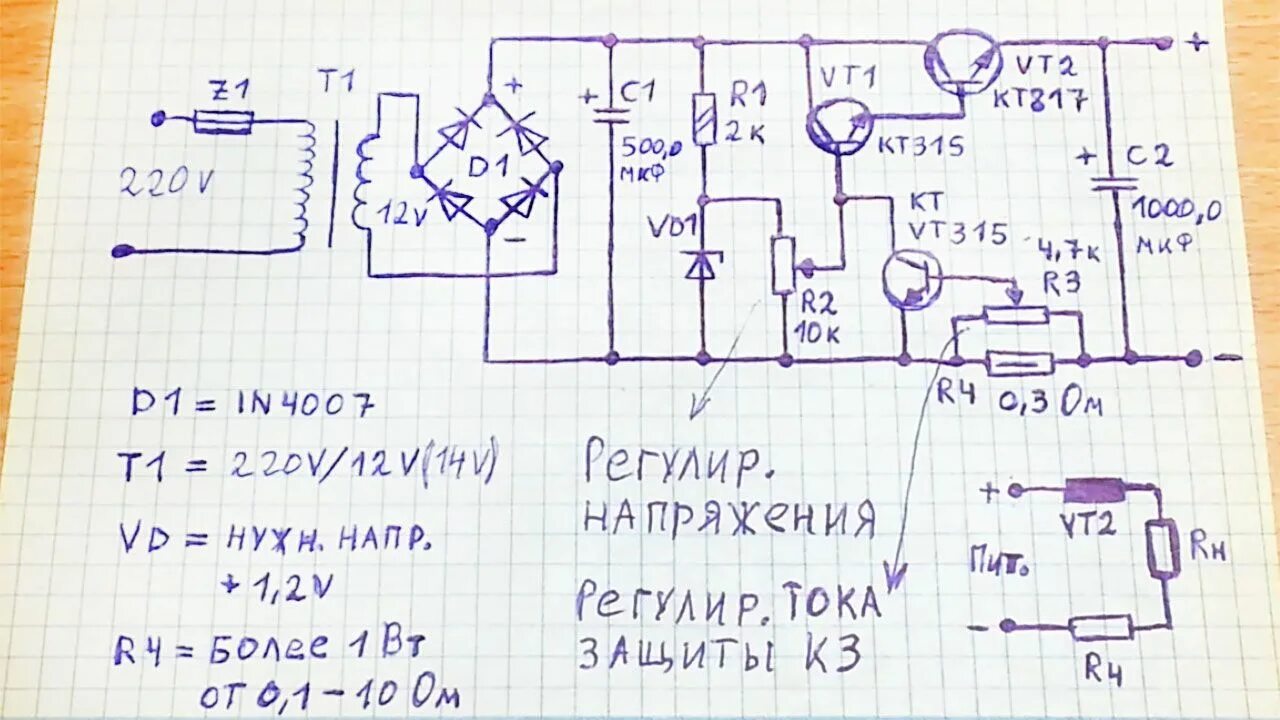 Z1
T1
220V
12V
D1
+
-
+
C1
500,0
мкФ
R1
2к
VD1
R2
10к
VT1
КТ315
VT2
КТ817
КТ
VT315
4,7к
R3
R4
0,3 Ом
+
C2
1000,0
мкФ
+
-
D1 = 1N4007
T1 = 220V/12V(14V)
VD = НУЖН. НАПР.
+ 1,2V
R4 = БОЛЕЕ 1 Вт
ОТ 0,1 - 10 Ом
РЕГУЛИР.
НАПРЯЖЕНИЯ
РЕГУЛИР. ТОКА
ЗАЩИТЫ КЗ
+
VT2
Пит.
Rн
-
R4